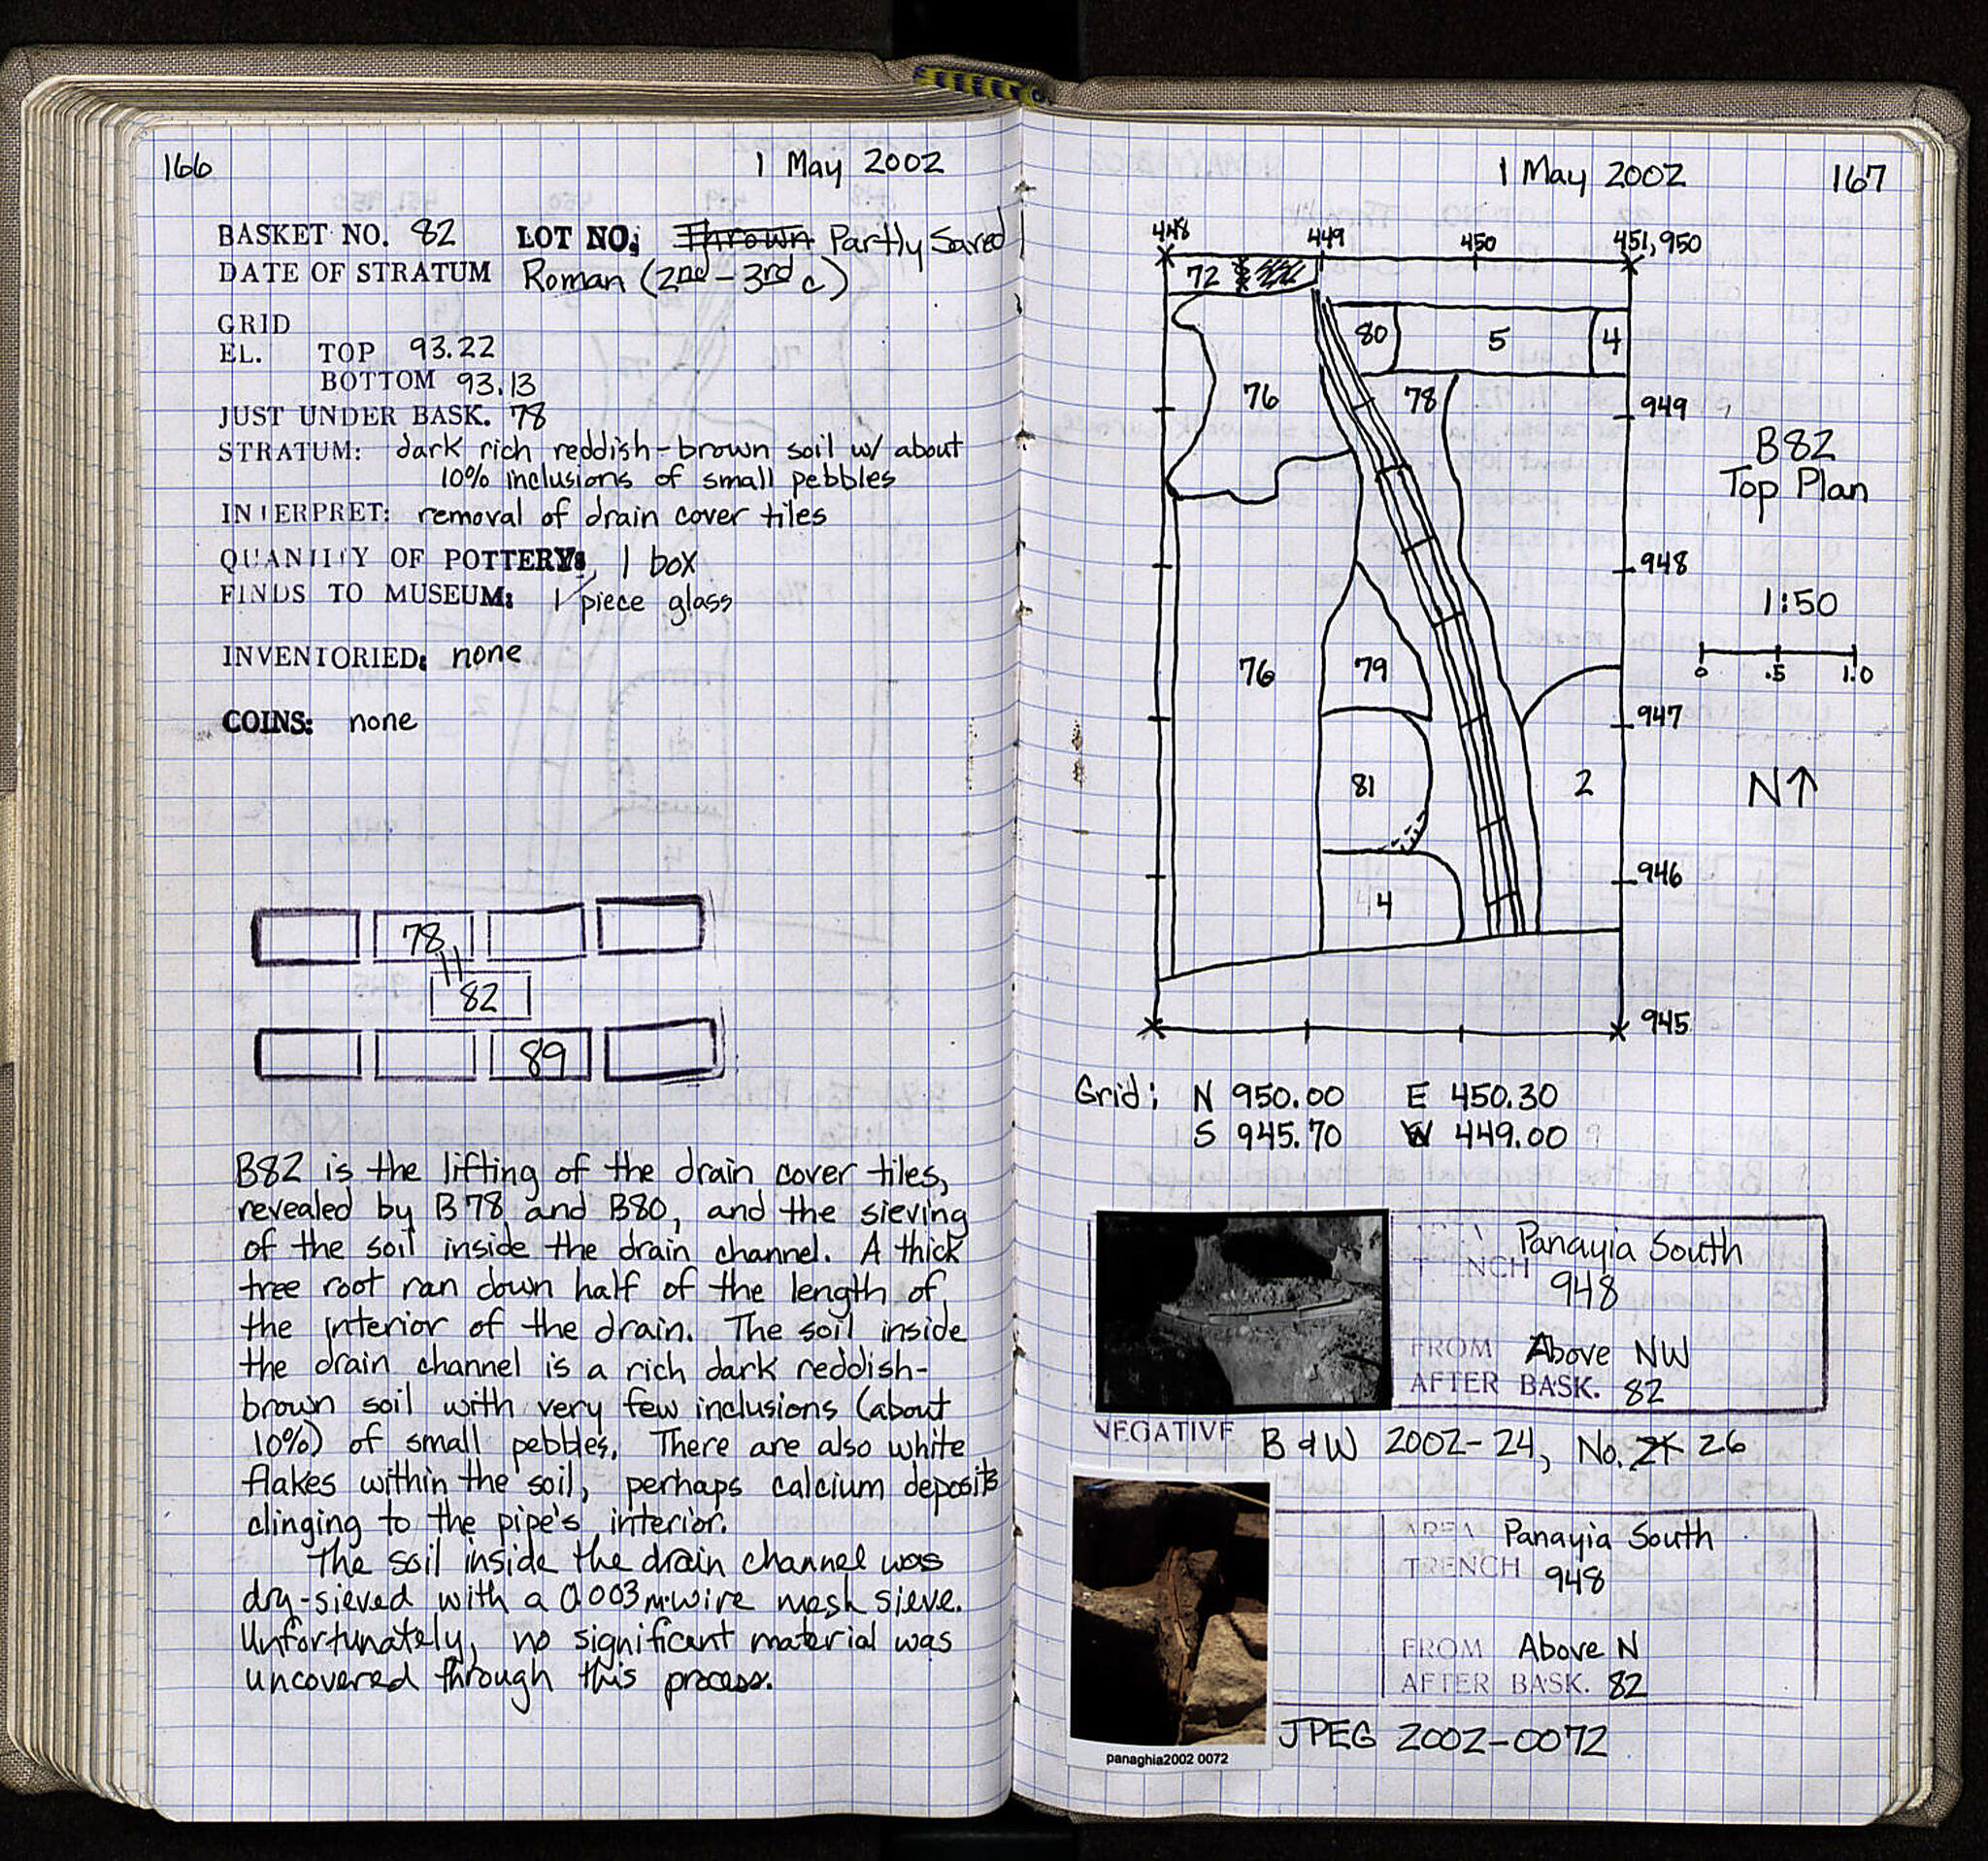 166
1 May 2002
BASKET NO. 82 LOT NO: Thrown Partly Saved
DATE OF STRATUM Roman (2nd - 3rd c)
GRID
EL. TOP 93.22
BOTTOM 93.13
JUST UNDER BASK. 78
STRATUM: dark rich reddish-brown soil w/ about
10% inclusions of small pebbles
INTERPRET: removal of drain cover tiles
QUANTITY OF POTTERY: 1 box
FINDS TO MUSEUM: 1 piece glass
INVENTORIED: none
COINS: none
78
82
89
B82 is the lifting of the drain cover tiles,
revealed by B78 and B80, and the sieving
of the soil inside the drain channel. A thick
tree root ran down half of the length of
the interior of the drain. The soil inside
the drain channel is a rich dark reddish-
brown soil with very few inclusions (about
10%) of small pebbles. There are also white
flakes within the soil, perhaps calcium deposits
clinging to the pipe's interior.
The soil inside the drain channel was
dry-sieved with a 0.003 m. wire mesh sieve.
Unfortunately, no significant material was
uncovered through this process.
1 May 2002
167
448 449 450 451,950
72
80 5 4
76 78 949
B82
Top Plan
948
1:50
0 .5 1.0
76 79
947
81 2
N↑
946
4
945
Grid: N 950.00 E 450.30
S 945.70 W 449.00
AREA Panayia South
TRENCH 948
FROM Above NW
AFTER BASK. 82
NEGATIVE B & W 2002-24, No. 26
AREA Panayia South
TRENCH 948
FROM Above N
AFTER BASK. 82
JPEG 2002-0072
panaghia2002 0072